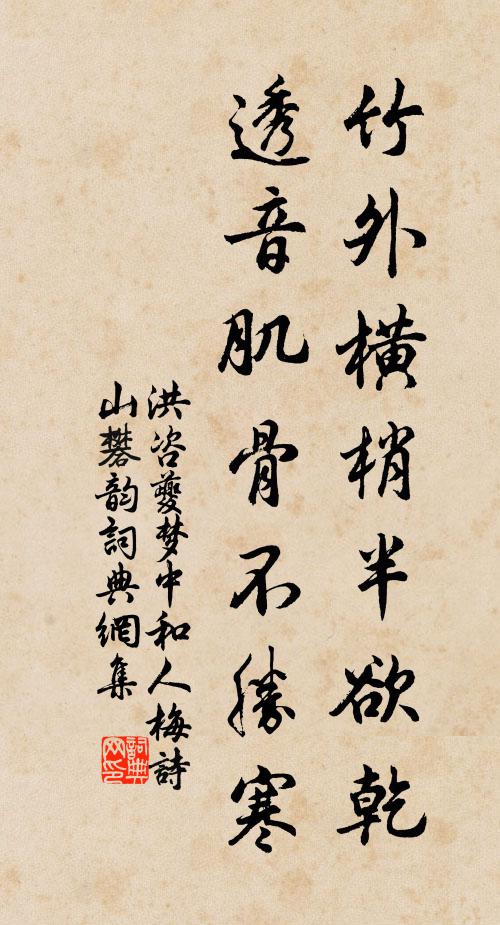 竹外橫梢半欲乾
透音肌骨不勝寒
洪咨夔梦中和人梅詩
山礬韵詞典網集
詞典網印